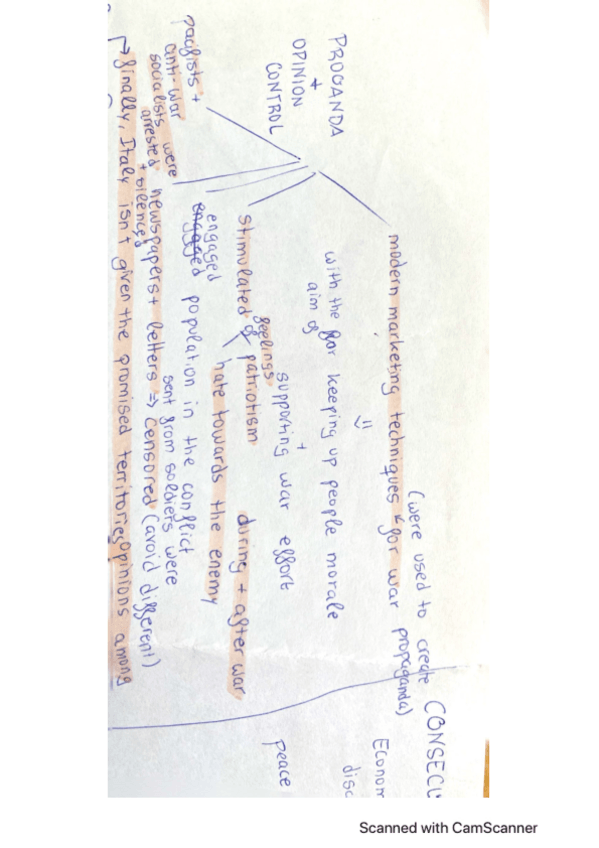 (were used to create CONSECU
modern marketing techniques & for war propaganda)
Econom
disc
PROGANDA
+
OPINION
CONTROL
⇓
with the for keeping up people morale
aim of
+
supporting war effort
Peace
feelings
stimulated of patriotism during + after war
hate towards the enemy
engaged
engaged population in the conflict
pacifists +
anti-war
socialists were
arrested
+ silenced
sent from soldiers were
newspapers + letters => censored (avoid different)
→ finally, Italy isn't given the promised territories Opinions among
Scanned with CamScanner